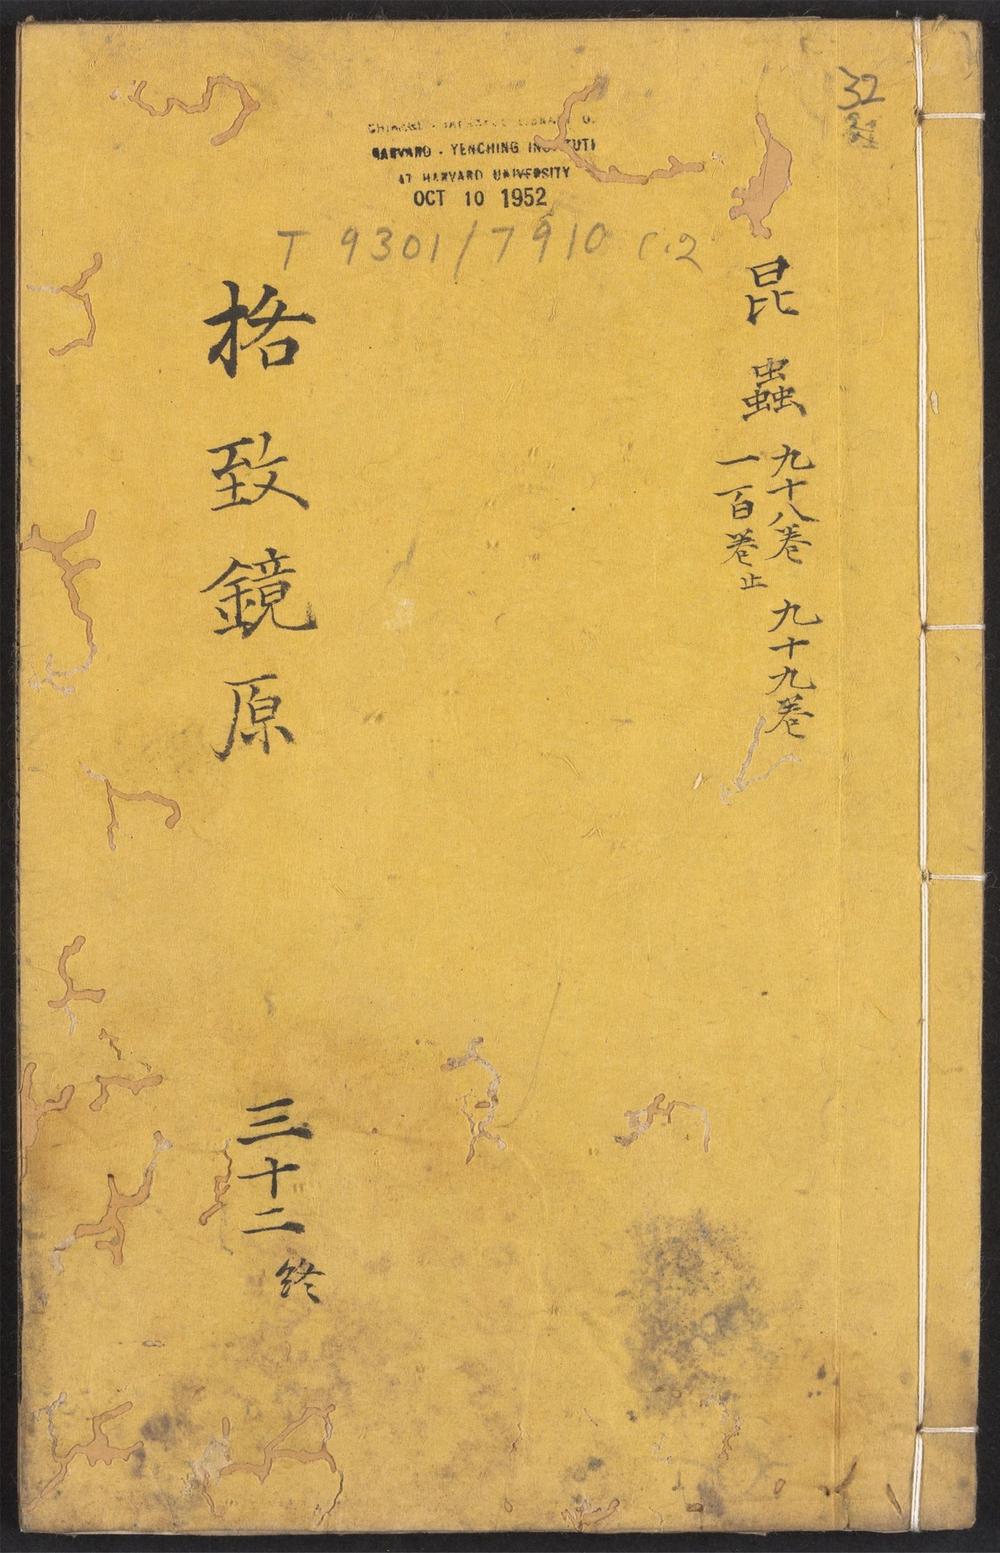 32
HARVARD - YENCHING INSTITUTE
AT HARVARD UNIVERSITY
OCT 10 1952
T 9301/7910 C.2
昆蟲
九十八卷 九十九卷
一百卷止
格致鏡原
三十二
終